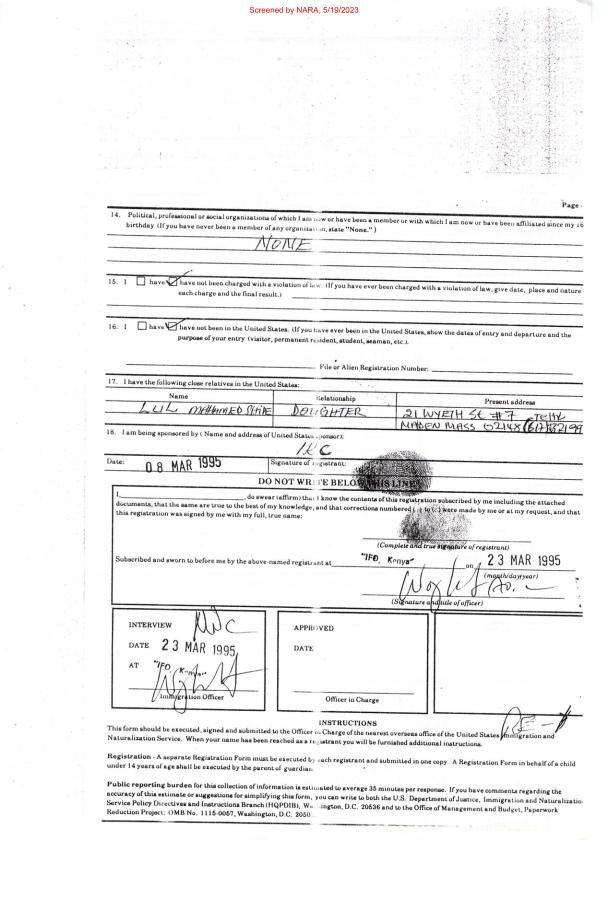 Screened by NARA, 5/19/2023
Page
14. Political, professional or social organizations of which I am now or have been a member or with which I am now or have been affiliated since my 16
birthday (If you have never been a member of any organization, state "None.")
NONE
15. I have have not been charged with a violation of law. (If you have ever been charged with a violation of law, give date, place and nature
each charge and the final result.)
16. I have have not been in the United States. (If you have ever been in the United States, show the dates of entry and departure and the
purpose of your entry (visitor, permanent resident, student, seaman, etc.).
File or Alien Registration Number:
17. I have the following close relatives in the United States:
Name Relationship Present address
LUL MOHAMMED DOUGHTER 21 WYETH St #7
MADEN MASS 02148
18. I am being sponsored by (Name and address of United States sponsor):
Date: 08 MAR 1995 Signature of registrant:
DO NOT WRITE BELOW THIS LINE
I, , do swear (affirm) that I know the contents of this registration subscribed by me including the attached
documents, that the same are true to the best of my knowledge, and that corrections numbered ( ) to ( ) were made by me or at my request, and that
this registration was signed by me with my full, true name:
(Complete and true signature of registrant)
Subscribed and sworn to before me by the above-named registrant at "IFO, Kenya" on 23 MAR 1995
(month/day/year)
(Signature and title of officer)
INTERVIEW
DATE 23 MAR 1995
AT "IFO, Kenya"
Immigration Officer
APPROVED
DATE
Officer in Charge
INSTRUCTIONS
This form should be executed, signed and submitted to the Officer in Charge of the nearest overseas office of the United States Immigration and
Naturalization Service. When your name has been reached as a registrant you will be furnished additional instructions.
Registration - A separate Registration Form must be executed by each registrant and submitted in one copy. A Registration Form in behalf of a child
under 14 years of age shall be executed by the parent of guardian.
Public reporting burden for this collection of information is estimated to average 35 minutes per response. If you have comments regarding the
accuracy of this estimate or suggestions for simplifying this form, you can write to both the U.S. Department of Justice, Immigration and Naturalization
Service Policy Directives and Instructions Branch (HQPDIB), Washington, D.C. 20536 and to the Office of Management and Budget, Paperwork
Reduction Project: OMB No. 1115-0057, Washington, D.C. 2050